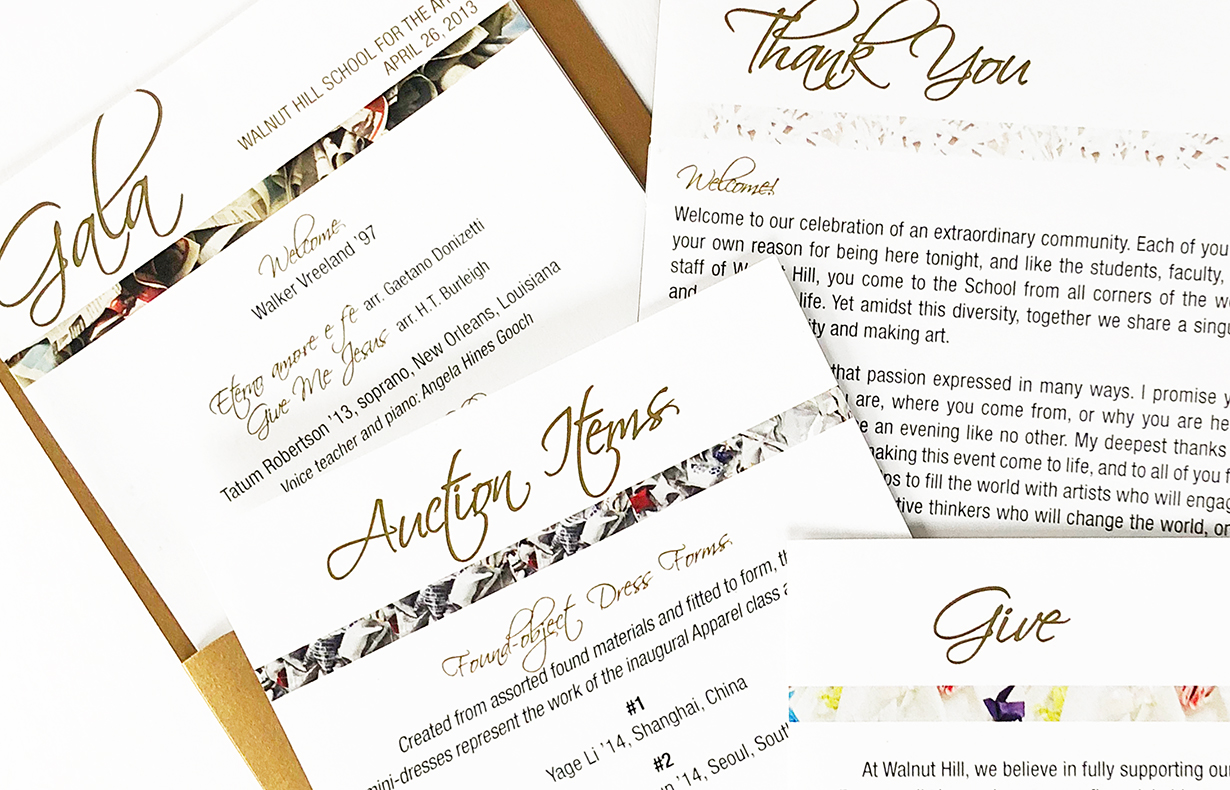 WALNUT HILL SCHOOL FOR THE
APRIL 26, 2013
Gala
Welcome
Walker Vreeland '97
Eterno amore e fé arr. Gaetano Donizetti
Give Me Jesus arr. H.T. Burleigh
Tatum Robertson '13, soprano, New Orleans, Louisiana
Voice teacher and piano: Angela Hines Gooch
Thank You
Welcome!
Welcome to our celebration of an extraordinary community. Each of you
your own reason for being here tonight, and like the students, faculty,
staff of Hill, you come to the School from all corners of the
and life. Yet amidst this diversity, together we share a
and making art.
that passion expressed in many ways. I promise
are, where you come from, or why you are
an evening like no other. My deepest thanks
making this event come to life, and to all of you
to fill the world with artists who will
thinkers who will change the world, or
Auction Items
Found-object Dress Forms
Created from assorted found materials and fitted to form,
mini-dresses represent the work of the inaugural Apparel class
#1
Yage Li '14, Shanghai, China
#2
'14, Seoul,
Give
At Walnut Hill, we believe in fully supporting